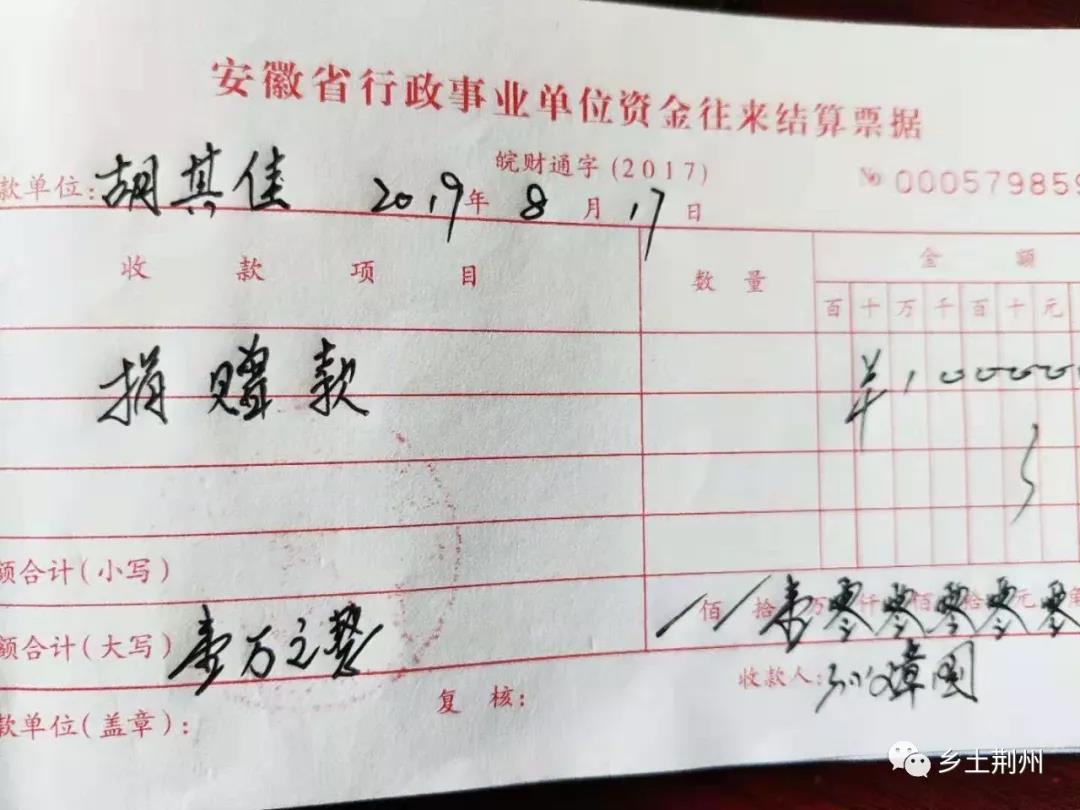 安徽省行政事业单位资金往来结算票据
皖财通字(2017)
№ 000579859
款单位:胡其佳 2019年 8月 17日
收款项目 数量 金额
百十万千百十元
捐赠款 ¥1000000
额合计(小写)
额合计(大写)壹万元整 佰 拾壹万零仟零佰零拾零元零
款单位(盖章): 复核: 收款人:
乡土荆州